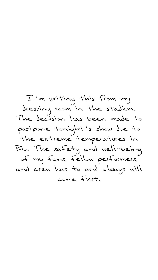 I'm writing this from my
dressing room in the stadium.
The decision has been made to
postpone tonight's show due to
the extreme temperatures in
Rio. The safety and well-being
of my fans, fellow performers,
and crew has to and always will
come first.